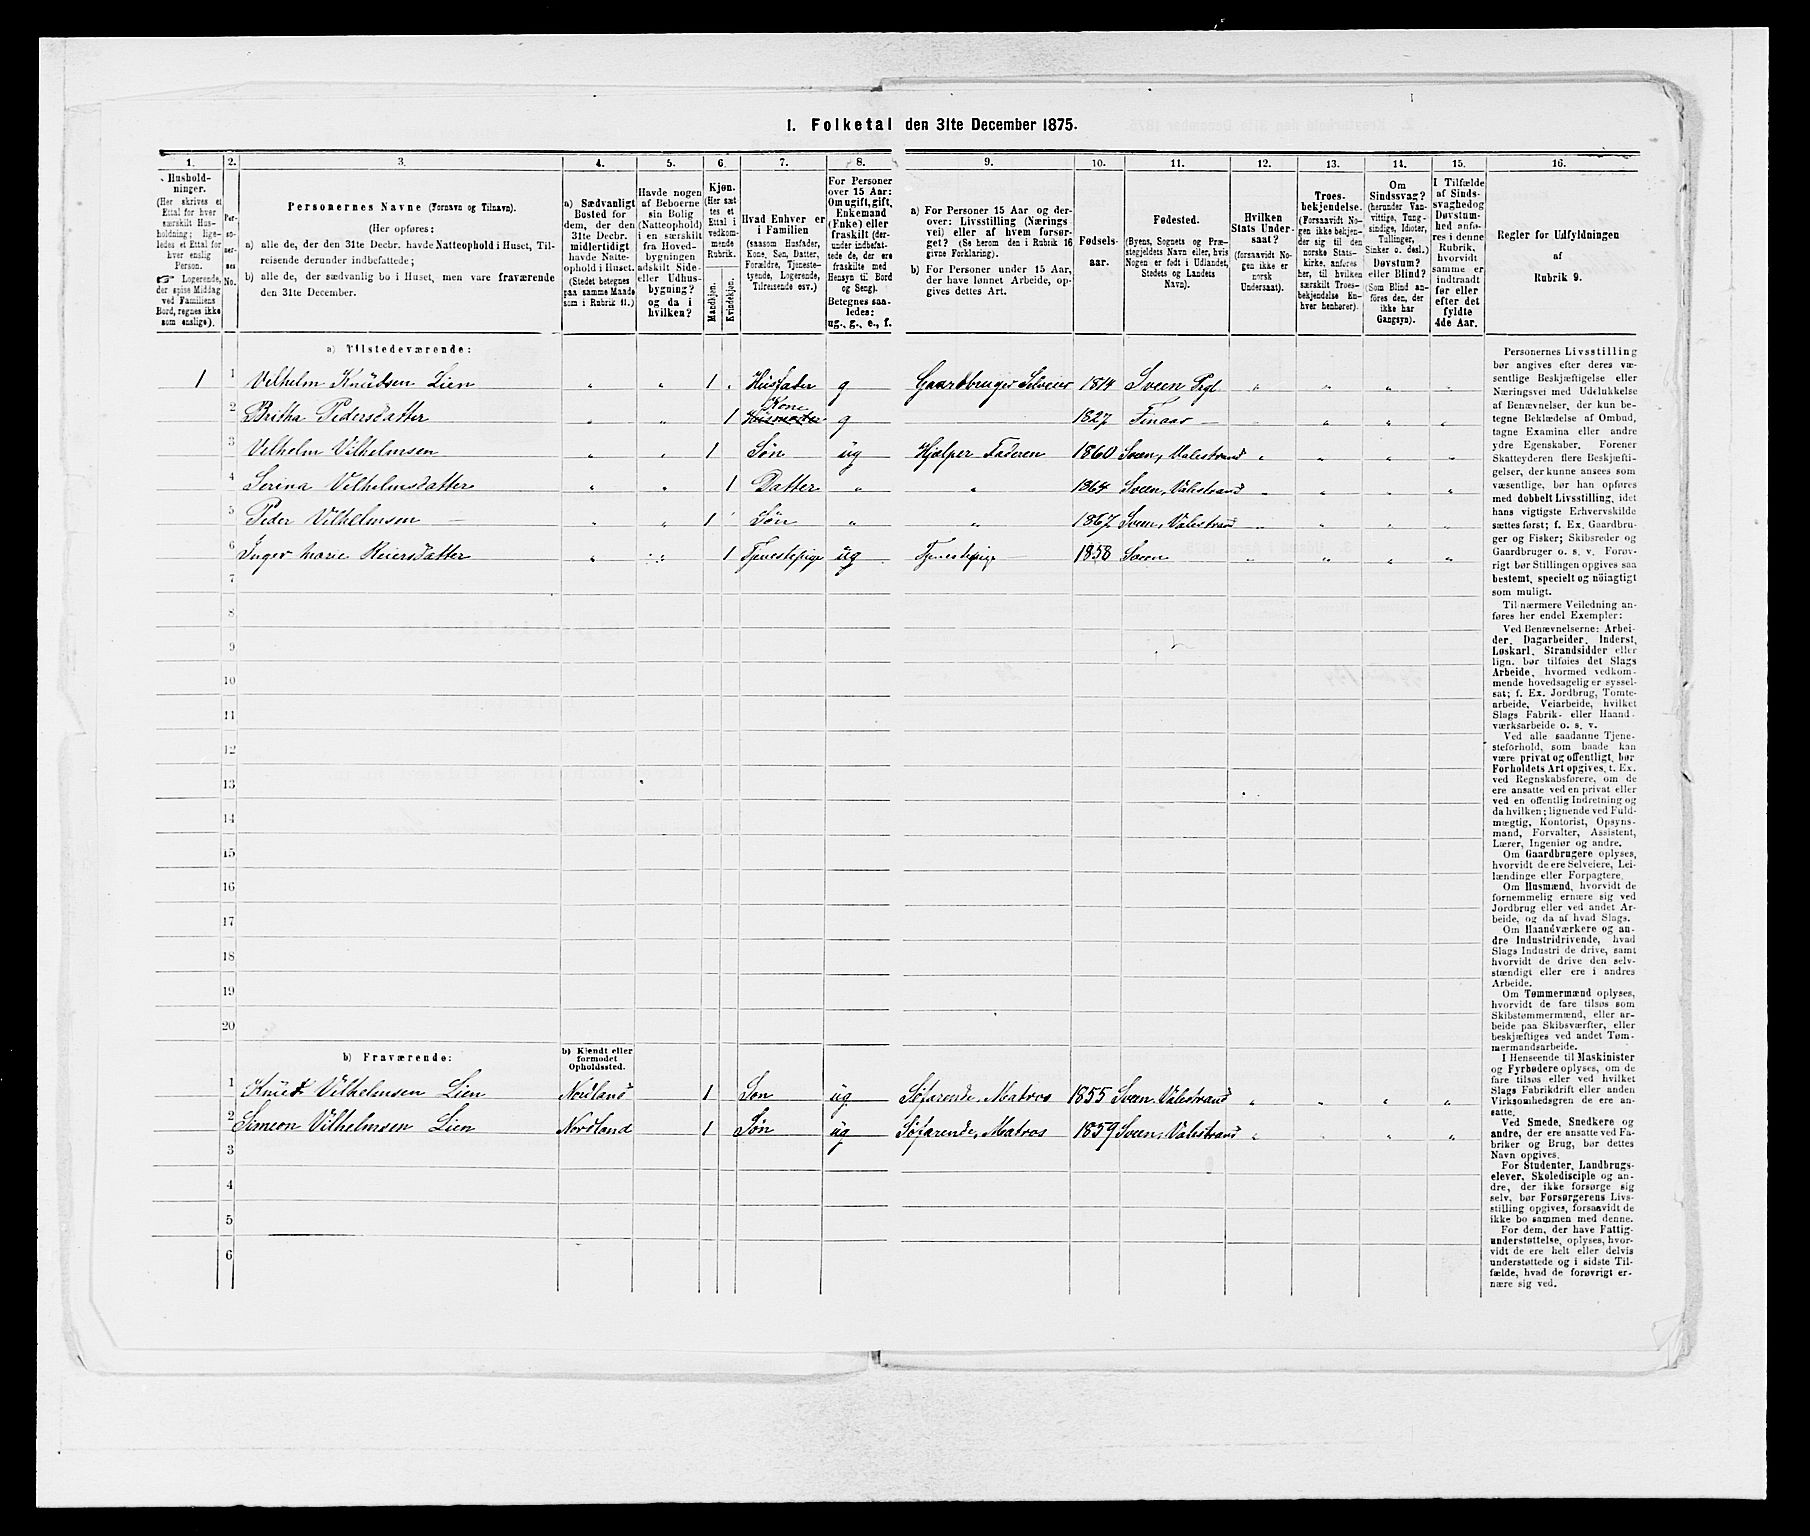 I. Folketal den 31te December 1875.
1. 2. 3. 4. 5. 6. 7. 8. 9. 10. 11. 12. 13. 14. 15. 16.
Hushold-
ninger.
(Her skrives et
Ettal for hver
særskilt Hus-
holdning; lige-
ledes et Ettal for
hver enslig
Person.
☞ Logerende,
der spise Middag
ved Familiens
Bord, regnes ikke
som enslige).
Per-
so-
ner-
nes
No.
Personernes Navne (Fornavn og Tilnavn).
(Her opføres:
a) alle de, der den 31te Decbr. havde Natteophold i Huset, Til-
reisende derunder indbefattede;
b) alle de, der sædvanlig bo i Huset, men vare fraværende
den 31te December.
a) Sædvanligt
Bosted for
dem, der den
31te Decbr.
midlertidigt
havde Natte-
ophold i Huset.
(Stedet betegnes
paa samme Maade
som i Rubrik 11.)
Havde nogen
af Beboerne
sin Bolig
(Natteophold)
i en særskilt
fra Hoved-
bygningen
adskilt Side-
eller Udhus-
bygning?
og da i
hvilken?
Kjøn.
(Her sæt-
tes et
Ettal i
vedkom-
mende
Rubrik.
Mandkjøn.
Kvindekjøn.
Hvad Enhver er
i Familien
(saasom Husfader,
Kone, Søn, Datter,
Forældre, Tjeneste-
tyende, Logerende,
Tilreisende osv.)
For Personer
over 15 Aar:
Om ugift, gift,
Enkemand
(Enke) eller
fraskilt (der-
under indbefat-
tede de, der ere
fraskilte med
Hensyn til Bord
og Seng).
Betegnes saa-
ledes:
ug., g., e., f.
a) For Personer 15 Aar og der-
over: Livsstilling (Nærings-
vei) eller af hvem forsør-
get? (Se herom den i Rubrik 16
givne Forklaring).
b) For Personer under 15 Aar,
der have lønnet Arbeide, op-
gives dettes Art.
Fødsels-
aar.
Fødested.
(Byens, Sognets og Præ-
stegjeldets Navn eller, hvis
Nogen er født i Udlandet,
Stedets og Landets
Navn).
Hvilken
Stats Under-
saat?
(forsaavidt No-
gen ikke er
norsk
Undersaat).
Troes-
bekjendelse.
(Forsaavidt No-
gen ikke bekjen-
der sig til den
norske Stats-
kirke, anføres
her, til hvilken
særskilt Troes-
bekjendelse En-
hver henhører).
Om
Sindssvag?
(herunder Van-
vittige, Tung-
sindige, Idioter,
Tullinger,
Sinker o. desl.)
Døvstum?
eller Blind?
(Som Blind an-
føres den, der
ikke har
Gangsyn).
I Tilfælde
af Sinds-
svaghed og
Døvstum-
hed anfø-
res i denne
Rubrik,
hvorvidt
samme er
indtraadt
før eller
efter det
fyldte
4de Aar.
Regler for Udfyldningen
af
Rubrik 9.
a) Tilstedeværende:
1 1 Vilhelm Knudsen Lien " " 1 . Husfader g Gaardbruger Selveier 1814 Sveen Pgl " " " "
2 Britha Pedersdatter " " 1 Kone Husmoder g 1827 Finaas — — " " "
3 Vilhelm Vilhelmsen " " 1 Søn ug Hjelper Faderen 1860 Sveen, Valestrand " " " "
4 Serina Vilhelmsdatter " " 1 Datter " " 1864 Sveen, Valestrand " " " "
5 Peder Vilhelmsen — " " 1 Søn " " 1867 Sveen, Valestrand " " " "
6 Inger Marie Reiersdatter " " 1 Tjenestepige ug Tjenestepige 1858 Sveen " " " "
7
8
9
10
11
12
13
14
15
16
17
18
19
20
b) Fraværende:
b) Kjendt eller
formodet
Opholdssted.
1 Knut Vilhelmsen Lien Nordland 1 Søn ug Søfarende, Matros 1855 Sveen, Valestrand " " " "
2 Simeon Vilhelmsen Lien Nordland 1 Søn ug Søfarende, Matros 1859 Sveen, Valestrand " " " "
3
4
5
6
Personernes Livsstilling
bør angives efter deres væ-
sentlige Beskjæftigelse eller
Næringsvei med Udelukkelse
af Benævnelser, der kun be-
tegne Beklædelse af Ombud,
tagne Examina eller andre
ydre Egenskaber. Forener
Skatteyderen flere Beskjæfti-
gelser, der kunne ansees som
væsentlige, bør han opføres
med dobbelt Livsstilling, idet
hans vigtigste Erhvervskilde
sættes først; f. Ex. Gaardbru-
ger og Fisker; Skibsreder og
Gaardbruger o. s. v. Forøv-
rigt bør Stillingen opgives saa
bestemt, specielt og nöiagtigt
som muligt.
Til nærmere Veiledning an-
føres her endel Exempler:
Ved Benævnelserne: Arbei-
der, Dagarbeider, Inderst,
Løskarl, Strandsidder eller
lign. bør tilføies det Slags
Arbeide, hvormed vedkom-
mende hovedsagelig er syssel-
sat; f. Ex. Jordbrug, Tomte-
arbeide, Veiarbeide, hvilket
Slags Fabrik- eller Haand-
værksarbeide o. s. v.
Ved alle saadanne Tjene-
steforhold, som baade kan
være privat og offentligt, bør
Forholdets Art opgives, t. Ex.
ved Regnskabsførere, om de
ere ansatte ved en privat eller
ved en offentlig Indretning og
da hvilken; lignende ved Fuld-
mægtig, Kontorist, Opsyns-
mand, Forvalter, Assistent,
Lærer, Ingeniør og andre.
Om Gaardbrugere oplyses,
hvorvidt de ere Selveiere, Lei-
lændinge eller Forpagtere.
Om Husmænd, hvorvidt de
fornemmelig ernære sig ved
Jordbrug eller ved andet Ar-
beide, og da af hvad Slags.
Om Haandværkere og an-
dre Industridrivende, hvad
Slags Industri de drive, samt
hvorvidt de drive den selv-
stændigt eller ere i andres
Arbeide.
Om Tømmermænd oplyses,
hvorvidt de fare tilsøs som
Skibstømmermænd, eller ar-
beide paa Skibsværfter, eller
beskjæftiges ved andet Tøm-
mermandsarbeide.
I Henseende til Maskinister
og Fyrbødere oplyses, om de
fare tilsøs eller ved hvilket
Slags Fabrikdrift eller anden
Virksomhedsgren de ere an-
satte.
Ved Smede, Snedkere og
andre, der ere ansatte ved Fa-
briker og Brug, bør dettes
Navn opgives.
For Studenter, Landbrugs-
elever, Skoledisciple og an-
dre, der ikke forsørge sig
selv, bør Forsørgerens Livs-
stilling opgives, forsaavidt de
ikke bo sammen med denne.
For dem, der have Fattig-
understøttelse, oplyses, hvor-
vidt de ere helt eller delvis
understøttede og i sidste Til-
fælde, hvad de forøvrigt er-
nære sig ved.